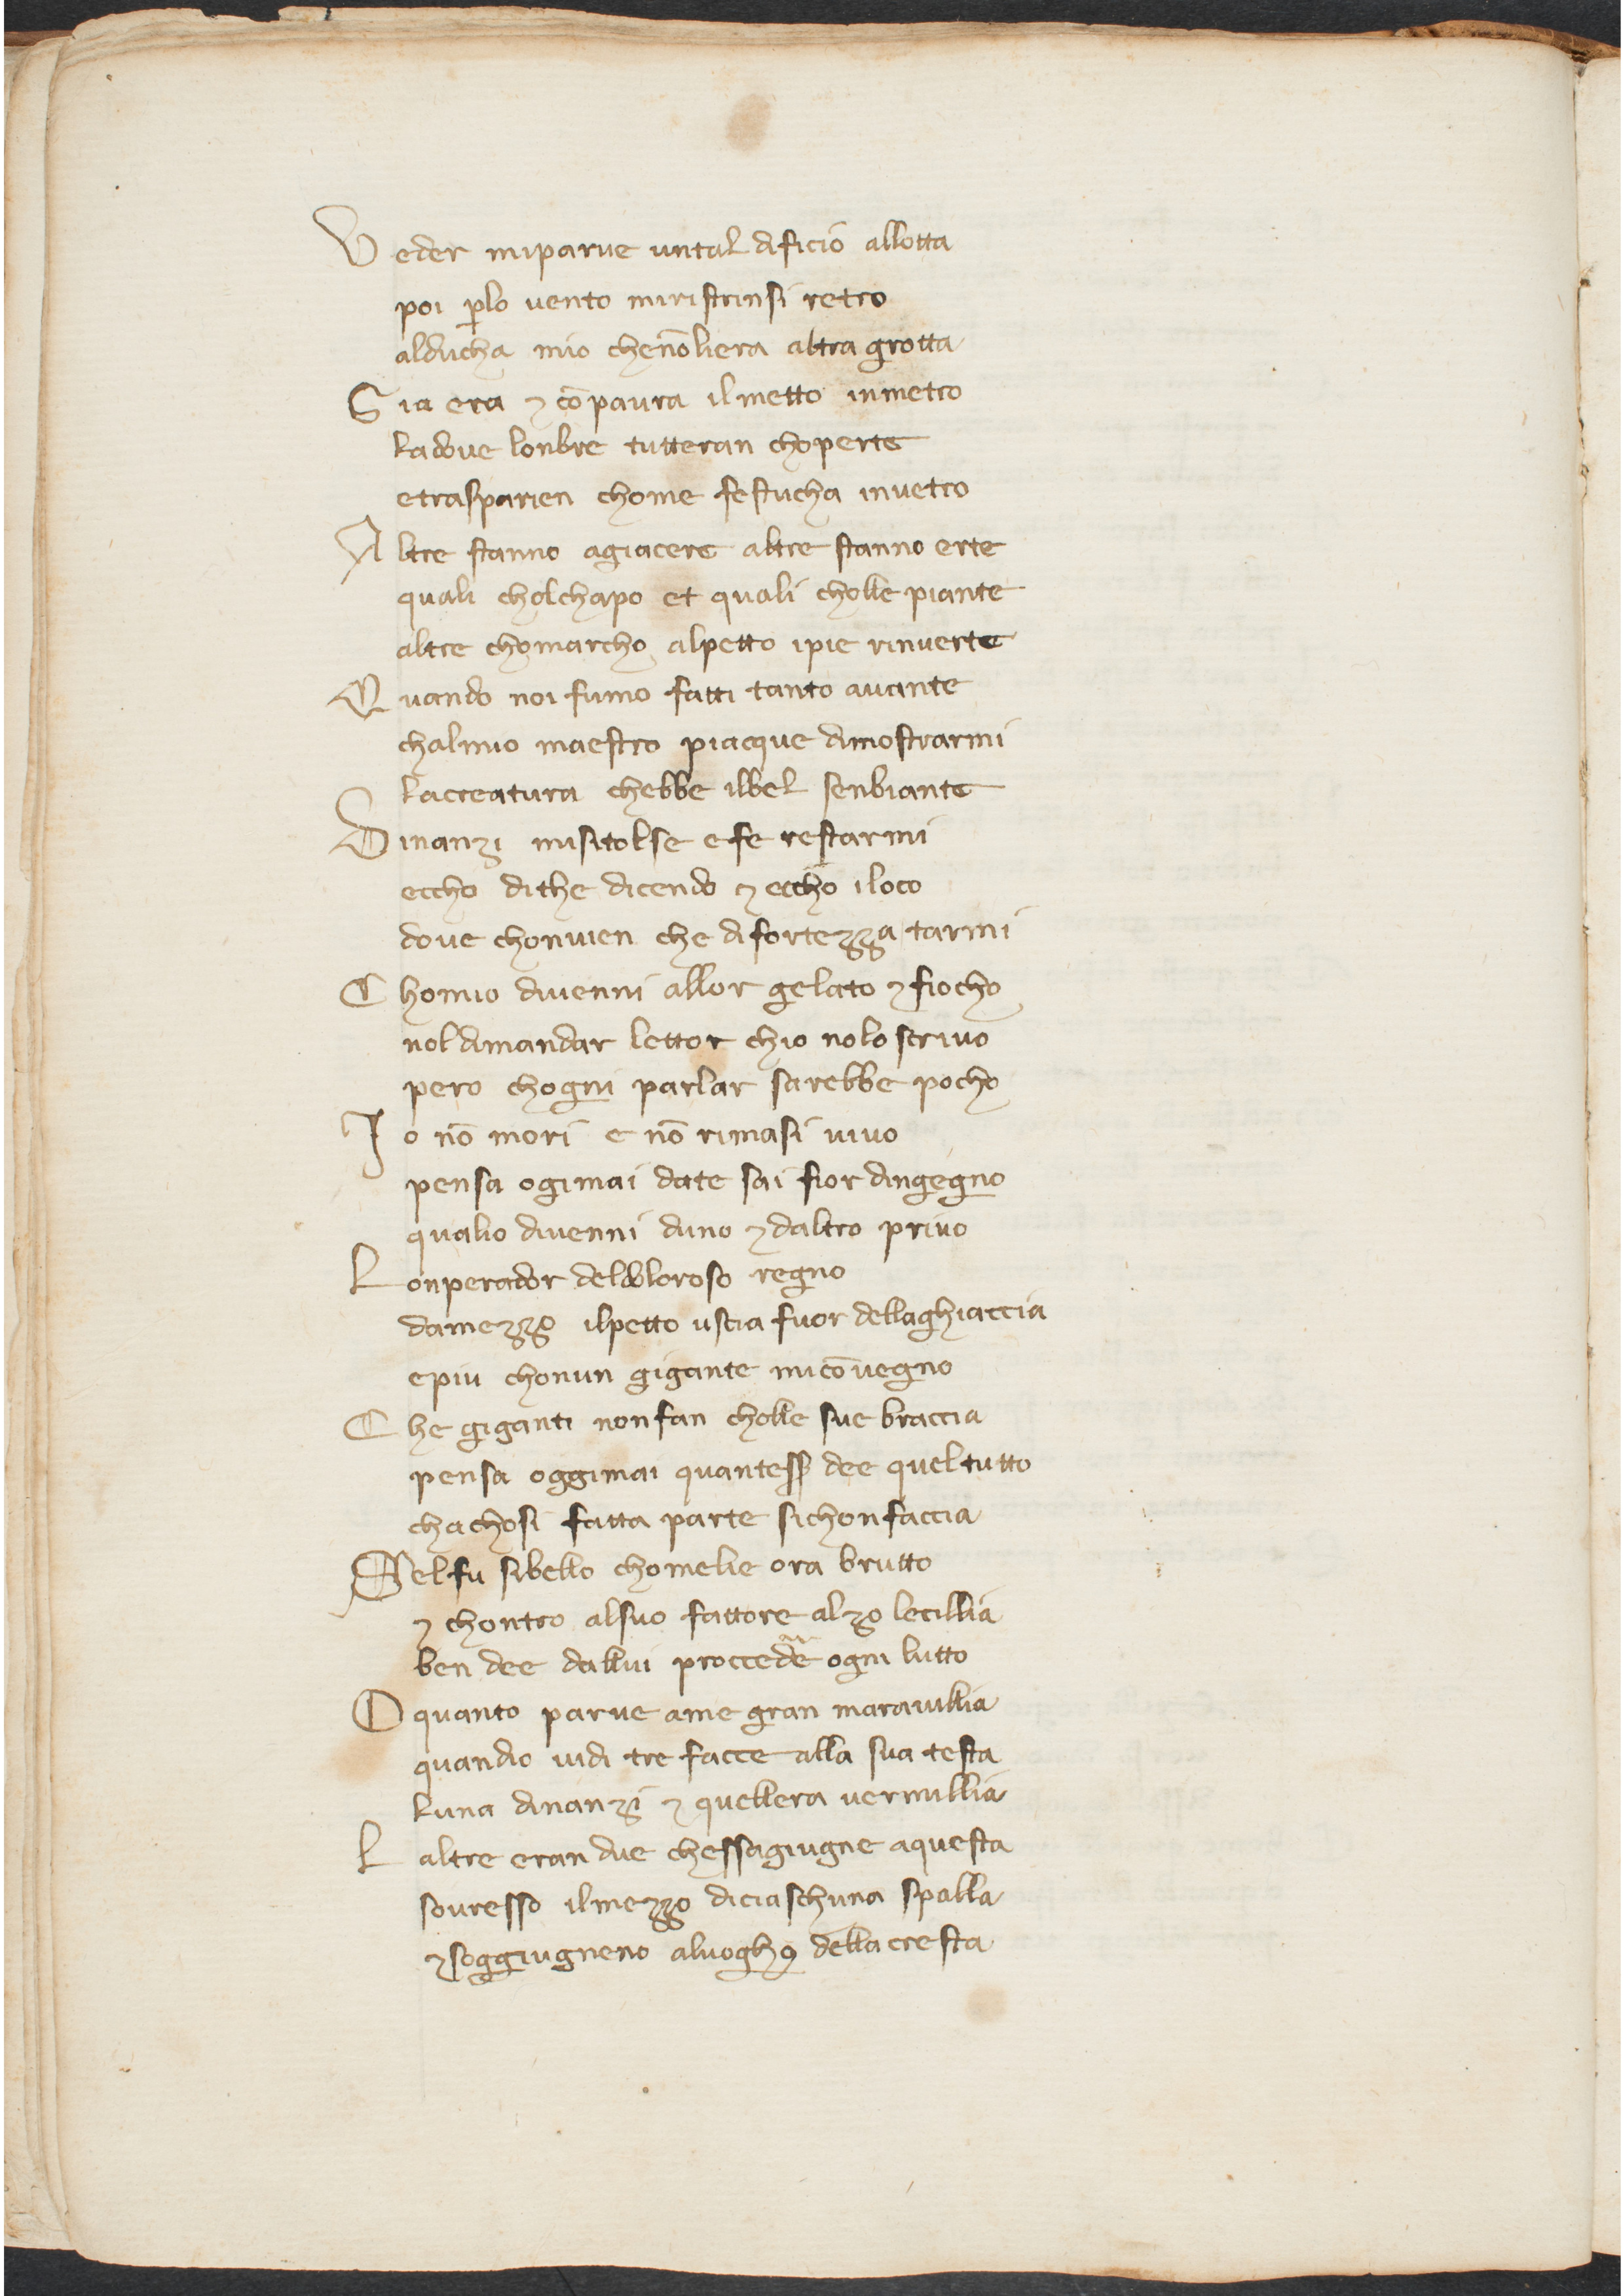 Veder miparve untal dificio allotta
poi ꝑlo vento miristrinsi retro
alducha mio chenōliera altra grotta
Gia era ⁊ cō paura ilmetto inmetro
ladove lonbre tutteran choperte
etrasparien chome festucha invetro
Altre stanno agiacere altre stanno erte
quali cholchapo et quali cholle piante
altre chomarcho alpetto ipie rinverte
Quando noi fumo fatti tanto avante
chalmio maestro piacque dimostrarmi
lacreatura chebbe ilbel senbiante
Dinanzi misitolse e fe restarmi
eccho dithe dicendo ⁊ eccho iloco
dove chonvien che difortezza tarmi
Chomio divenni allor gelato ⁊ fiocho
nol dimandar lettor chio nolo scrivo
pero chogni parlar sarebbe pocho
Io nō mori e nō rimasi vivo
pensa ogimai date sai fior dingegno
qualio divenni duno ⁊ daltro privo
Lonperador deldoloroso regno
damezzo ilpetto uscia fuor dellaghiaccia
epiu chonun gigante micōvegno
Che giganti nonfan cholle sue braccia
pensa oggimai quantess dee queltutto
chachosi fatta parte sichonfaccia
Selfu sibello chomelie ora brutto
⁊ chontro alsuo fattore alzo lecillia
ben dee dallui proccede ogni lutto
O quanto parve ame gran maravillia
quandio vidi tre facce alla sua testa
luna dinanzi ⁊ quellera vermillia
Laltre eran due chessagiugne aquesta
sovresso ilmezzo diciaschuna spalla
⁊ soggiugneno aluogho della cresta